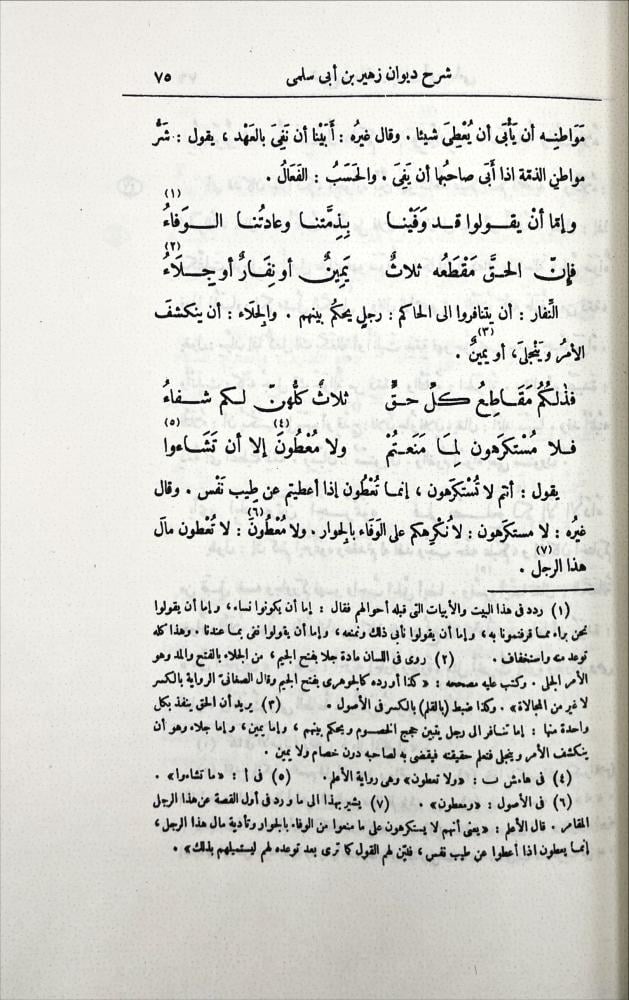 شرح ديوان زهير بن أبى سلمى ٧٥
مَوَاطنِـه أن يَأْبَى أن يُعْطِىَ شيئا . وقال غيرُه : أَبَيْنا أن نَفِىَ بالعَهْد ، يقول : شَرُّ
مواطنِ الذمّة اذا أَبَى صاحبُها أن يَفِىَ . والحَسَبُ : الفَعَالُ .
و إمّا أنْ يقـولوا قـد وَفَيْنـا بِذِمَّتنـا وعادتُنـا الـوفاءُ (١)
فإنّ الحـقَّ مَقْطَعُه ثلاثٌ يَمِينٌ أو نِفَارٌ أو جِلَاءُ (٢)
النِّفار : أن يتنافروا الى الحاكم : رجلٍ يحكم بينهم . والجِلَاء : أن ينكشفَ
الأمرُ و يَنْجلىَ، أو يمينٌ (٣) .
فذلكُمُ مَقَاطِعُ كلِّ حقٍّ ثلاثٌ كلُّهنّ لكم شفاءُ
فـلا مُسْتكرَهون لِمَا مَنَعـتُمْ ولا مُعْطُونَ (٤) إلا أن تَشَاءوا (٥)
يقول : أنتم لا تُسْتكرَهون ، إنمـا تُعْطُون إذا أعطيتم عن طِيبِ نَفْس . وقال
غيرُه : لا مستكرَهون : لا نُكْرِهكم على الوَفَاء بالجِوار . ولا مُعْطُونَ (٦) : لا تُعْطون مالَ
هذا الرجل (٧) .
(١) ردد فى هذا البيت والأبيات التى قبله أحوالهم فقال : إما أن يكونوا نساء، و إما أن يقولوا
نحن براء ممـا قرفتمونا به ، و إما أن يقولوا نأبى ذلك ونمنعه، و إما أن يقولوا نفى بمـا عندنا . وهذا كله
توعد منه واستخفاف . (٢) روى فى اللسان مادة جلا بفتح الجيم، من الجلاء بالفتح والمد وهو
الأمر الجلى . وكتب عليه مصححه : «كذا أورده كالجوهرى بفتح الجيم وقال الصغانى الرواية بالكسر
لا غير من المجالاة» . وكذا ضبط (بالقلم) بالكسر فى الأصول . (٣) يريد أن الحق ينفذ بكل
واحدة منها : إما تنافر الى رجل يتبين حجج الخصوم ويحكم بينهم ، و إما يمين ، و إما جلاء وهو أن
ينكشف الأمر وينجلى فتعلم حقيقته فيقضى به لصاحبه دون خصام ولا يمين .
(٤) فى هامش ب : «ولا تعطون» وهى رواية الأعلم . (٥) فى أ : «ما تشاءوا» .
(٦) فى الأصول : «ومعطون» . (٧) يشير بهذا الى ما ورد فى أول القصة عن هذا الرجل
المقامر . قال الأعلم : «يعنى أنهم لا يستكرهون على ما منعوا من الوفاء بالجوار وتأدية مال هذا الرجل ،
إنمـا يعطون اذا أعطوا عن طيب نفس ، فلين لهم القول كما ترى بعد توعده لهم ليستميلهم بذلك» .